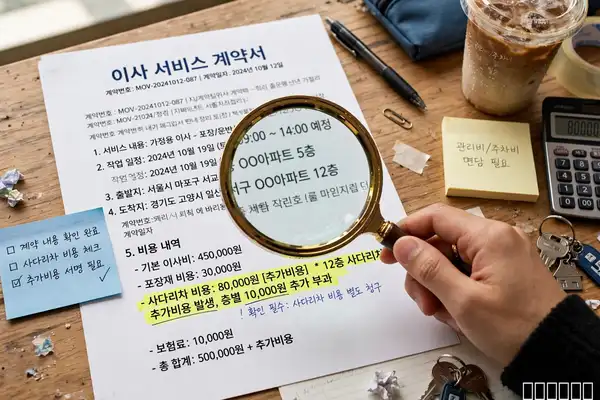 이사 서비스 계약서
계약번호: MOV-20241012-087 | 계약일자: 2024년 10월 12일
계약번호: MOV-20241012-087
1. 서비스 내용: 가정용 이사 - 포장/운반
2. 작업 일자: 2024년 10월 19일
작업 일정: 2024년 10월 19일
09:00 ~ 14:00 예정
3. 출발지: 서울시 마포구 서교
OO아파트 5층
4. 도착지: 경기도 고양시 일산
서구 OO아파트 12층
계약일자
5. 비용 내역
- 기본 이사비: 450,000원
- 포장재 비용: 30,000원
- 사다리차 비용: 80,000원 [추가비용] * 12층 사다리차
추가비용 발생, 층별 10,000원 추가 부과
! 확인 필수: 사다리차 비용 별도 청구
- 보험료: 10,000원
- 총 합계: 500,000원 + 추가비용
계약 내용 확인 완료
사다리차 비용 체크
추가비용 서명 필요
관리비/주차비
면담 필요
80000